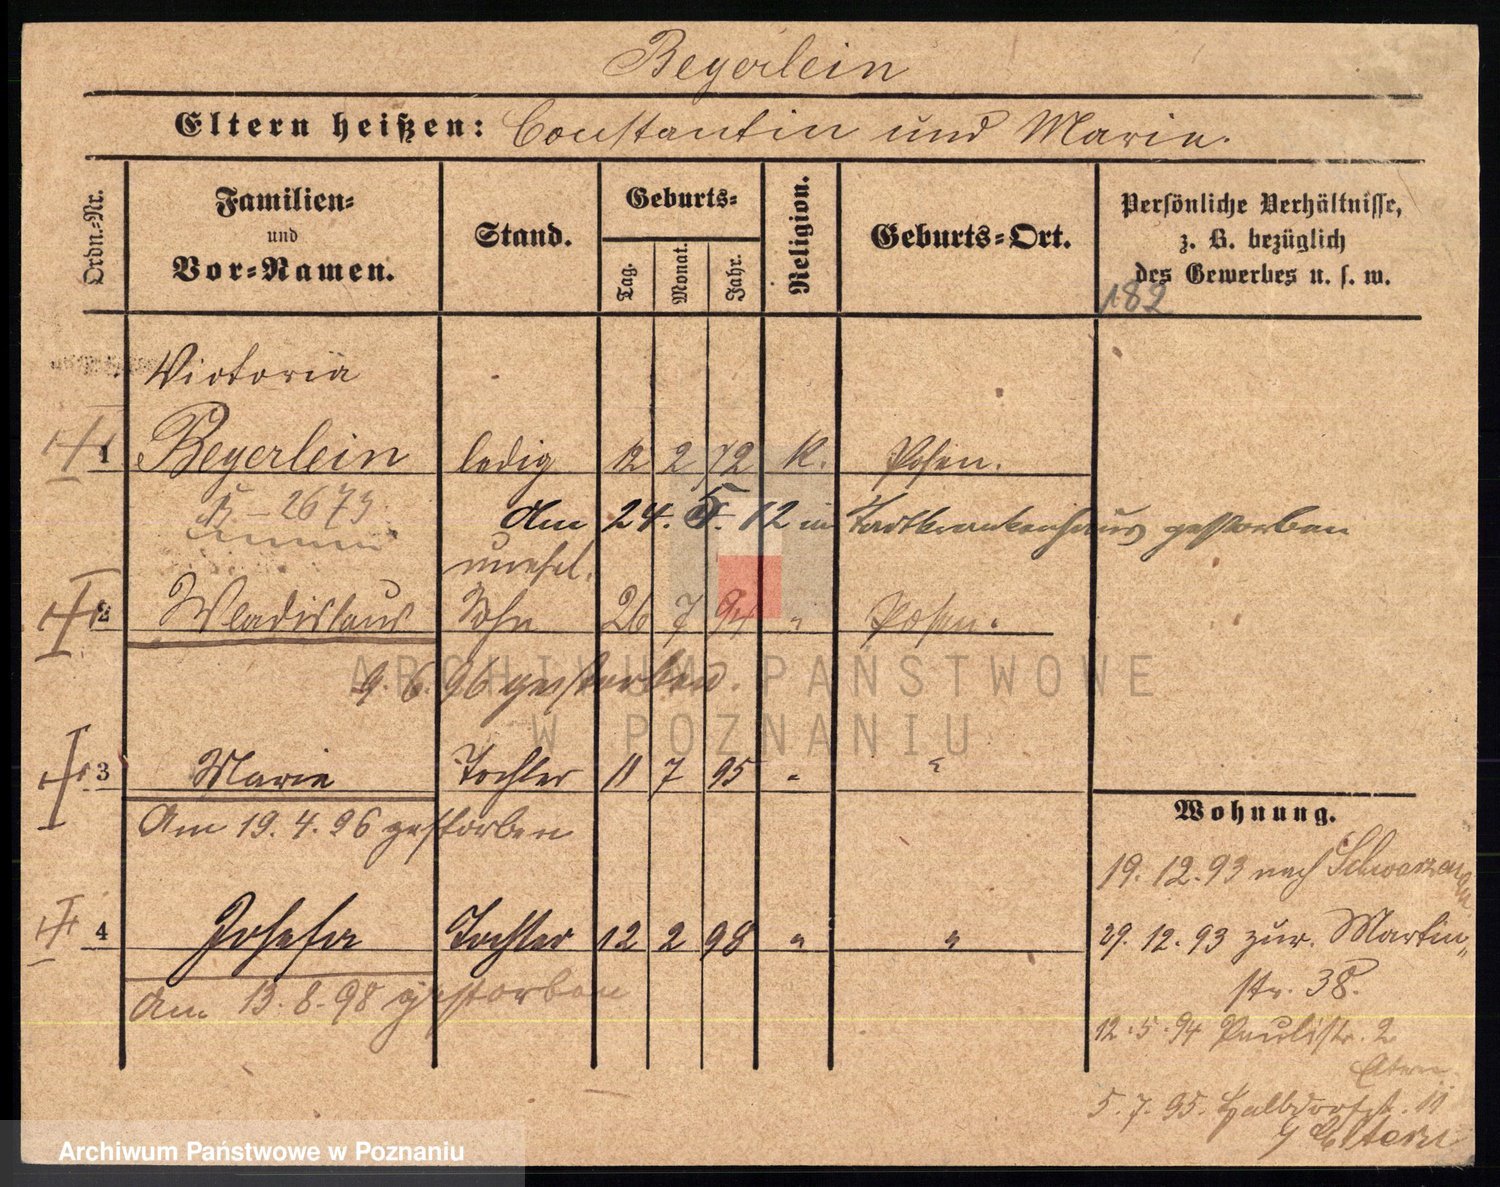 Beyerlein
Eltern heißen: Constantin und Marie.
Ordn.-Nr.
Familien-
und
Vor-Namen.
Stand.
Geburts-
Tag.
Monat.
Jahr.
Religion.
Geburts-Ort.
Persönliche Verhältnisse,
z. B. bezüglich
des Gewerbes u. s. w.
182
Victoria
1 Beyerlein ledig 12 2 72 K. Posen.
B - 2673
Am 24. 5. 12 im Stadtkrankenhaus gestorben
unehel.
2 Wladislaus Sohn 26 7 94 " Posen.
9. 6. 96 gestorben.
3 Marie Tochter 11 7 95 " "
Am 19. 4. 96 gestorben
4 Josefa Tochter 12 2 98 " "
Am 13. 8. 98 gestorben
Wohnung.
19. 12. 93 nach
29. 12. 93 zur. Martin
str. 38.
12. 5. 94 Paulistr. 2
5. 7. 95. Halbdorfstr. 11
Eltern
ARCHIWUM PAŃSTWOWE
W POZNANIU
Archiwum Państwowe w Poznaniu